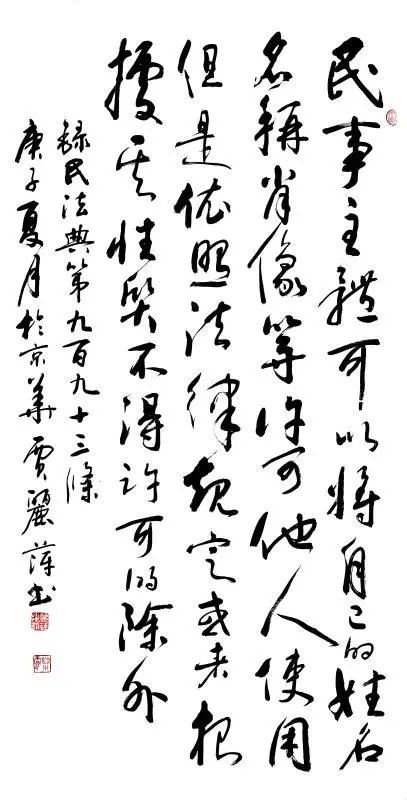 民事主體可以將自己的姓名
名稱肖像等許可他人使用
但是依照法律規定或者根
據其性質不得許可的除外
錄民法典第九百九十三條
庚子夏月於京華賈麗萍書